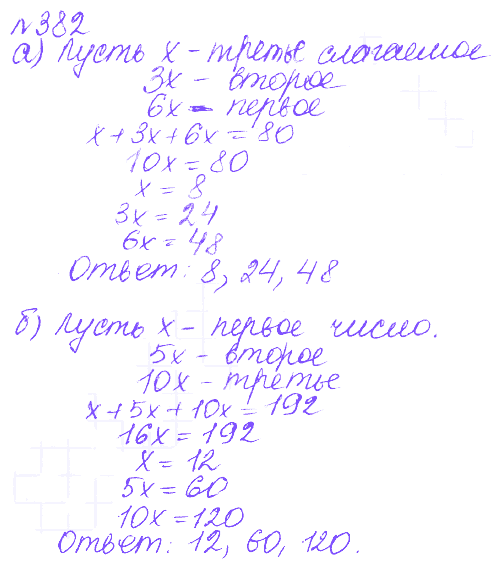 №382
а) Пусть x – третье слагаемое
3x – второе
6x – первое
x + 3x + 6x = 80
10x = 80
x = 8
3x = 24
6x = 48
Ответ: 8, 24, 48
б) Пусть x – первое число.
5x – второе
10x – третье
x + 5x + 10x = 192
16x = 192
x = 12
5x = 60
10x = 120
Ответ: 12, 60, 120.